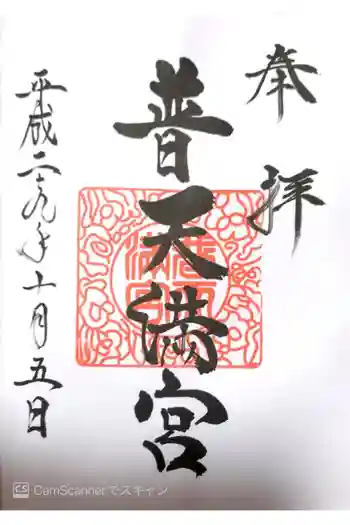 奉拝
普天満宮
平成二十九年十月五日
CS CamScannerでスキャン